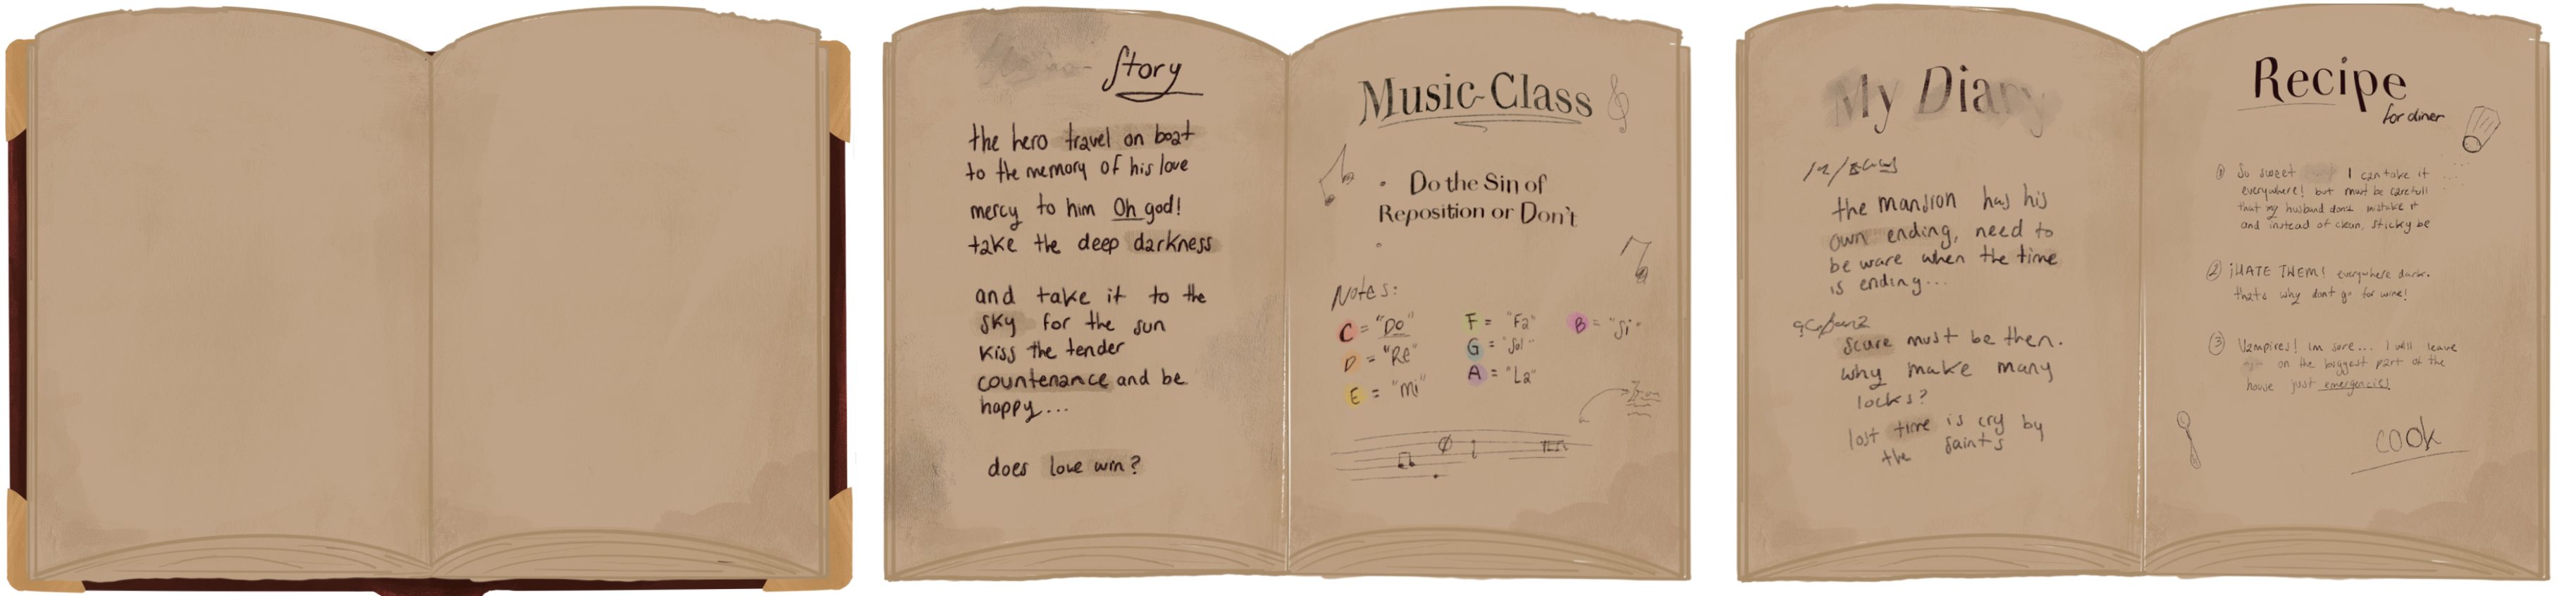 Story
the hero travel on boat
to the memory of his love
mercy to him Oh god!
take the deep darkness
and take it to the
sky for the sun
kiss the tender
countenance and be
happy...
does love win?
Music-Class
Do the Sin of
Reposition or Don't
Notes:
C = "Do"
D = "Re"
E = "Mi"
F = "Fa"
G = "Sol"
A = "La"
B = "Si"
My Diary
the mansion has his
own ending, need to
be ware when the time
is ending...
scure must be then.
why make many
locks?
lost time is cry by
the saints
Recipe
for diner
① So sweet I can take it
everywhere! but must be carefull
that my husband dont mistake it
and instead of clean, sticky be
② ¡HATE THEM! everywhere dark.
thats why dont go for wine!
③ Vampires! Im sure... I will leave
on the biggest part of the
house just emergencies
cook